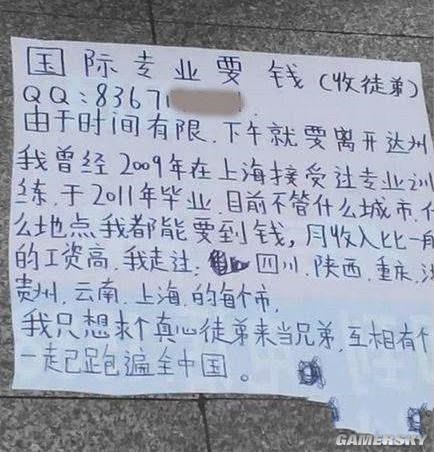 国际专业要钱(收徒弟)
QQ:83671
由于时间有限.下午就要离开达州
我曾经2009年在上海接受过专业训
练.于2011年毕业.目前不管什么城市.什
么地点我都能要到钱,月收入比一般
的工资高.我走过: 四川.陕西.重庆.
贵州.云南.上海.的每个市.
我只想求个真心徒弟来当兄弟,互相有个
一走已跑遍全中国。
GAMERSKY